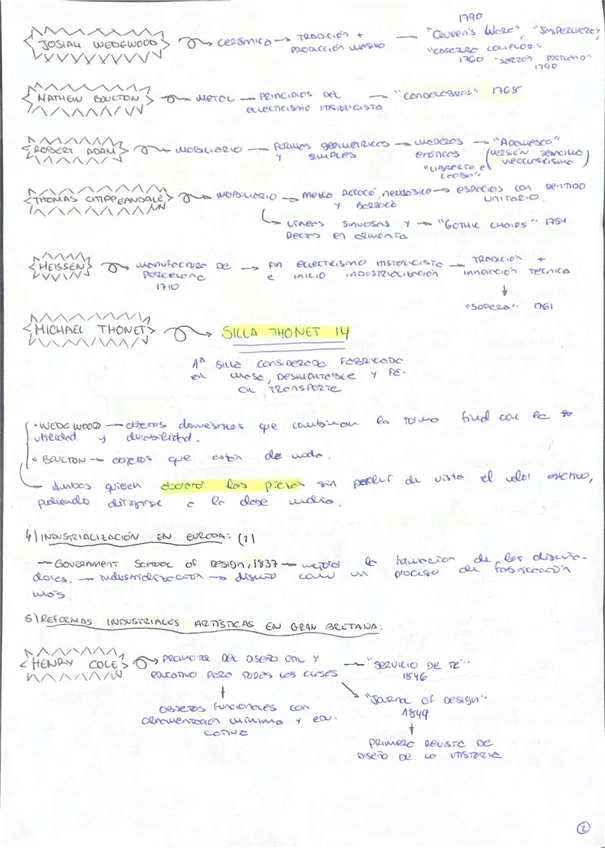 1790
JOSIAH WEDGWOOD CERÁMICA — TRADICIÓN + — "QUEEN'S WARE", "JASPERWARE",
PRODUCCIÓN MASIVA "CAFETERA COLIFLOR"
1760 "JARRÓN PORTLAND"
1790
MATHEW BOULTON METAL — PRINCIPIOS DEL — "CANDELABROS" 1765
ECLECTICISMO HISTORICISTA
ROBERT ADAM MOBILIARIO — FORMAS GEOMÉTRICAS — MADERAS — "ADAMESCO"
Y SIMPLES EXÓTICAS (VERSIÓN SENCILLA
"LIBRERÍA DE NEOCLASICISMO)
CAOBA"
THOMAS CHIPPEANDALE MOBILIARIO — MEZCLA ROCOCÓ, NEOCLÁSICO → ESPACIOS CON SENTIDO
Y BARROCO UNITARIO.
LÍNEAS SINUOSAS Y → "GOTHIC CHAIRS" 1754
RECTAS EN ARMONÍA
MEISSEN MANUFACTURA DE → FIN ECLECTICISMO HISTORICISTA → TRADICIÓN +
PORCELANA E INICIO INDUSTRIALIZACIÓN INNOVACIÓN TÉCNICA
1710
"SOPERA" 1761
MICHAEL THONET SILLA THONET 14
1ª SILLA CONSIDERADA FABRICADA
EN MASA, DESMONTABLE Y FÁ-
CIL TRANSPORTE
• WEDGWOOD — objetos domésticos que combinan la forma final con la
utilidad y durabilidad.
• BOULTON — objetos que están de moda.
Ambos quieren abaratar las piezas sin perder de vista el valor estético,
pudiendo dirigirse a la clase media.
4) INDUSTRIALIZACIÓN EN EUROPA: (1)
— GOVERNMENT SCHOOL OF DESIGN, 1837 — mejora la formación de los diseña-
dores. → Industrialización → diseño como un proceso de fabricación
más.
5) REFORMAS INDUSTRIALES ARTÍSTICAS EN GRAN BRETAÑA:
HENRY COLE PROMOTOR DEL DISEÑO ÚTIL Y — "SERVICIO DE TÉ"
EDUCATIVO PARA TODAS LAS CLASES 1846
"JOURNAL OF DESIGN"
OBJETOS FUNCIONALES CON 1849
ORNAMENTACIÓN MÍNIMA Y EDU-
CATIVA
PRIMERA REVISTA DE
DISEÑO DE LA HISTORIA
2